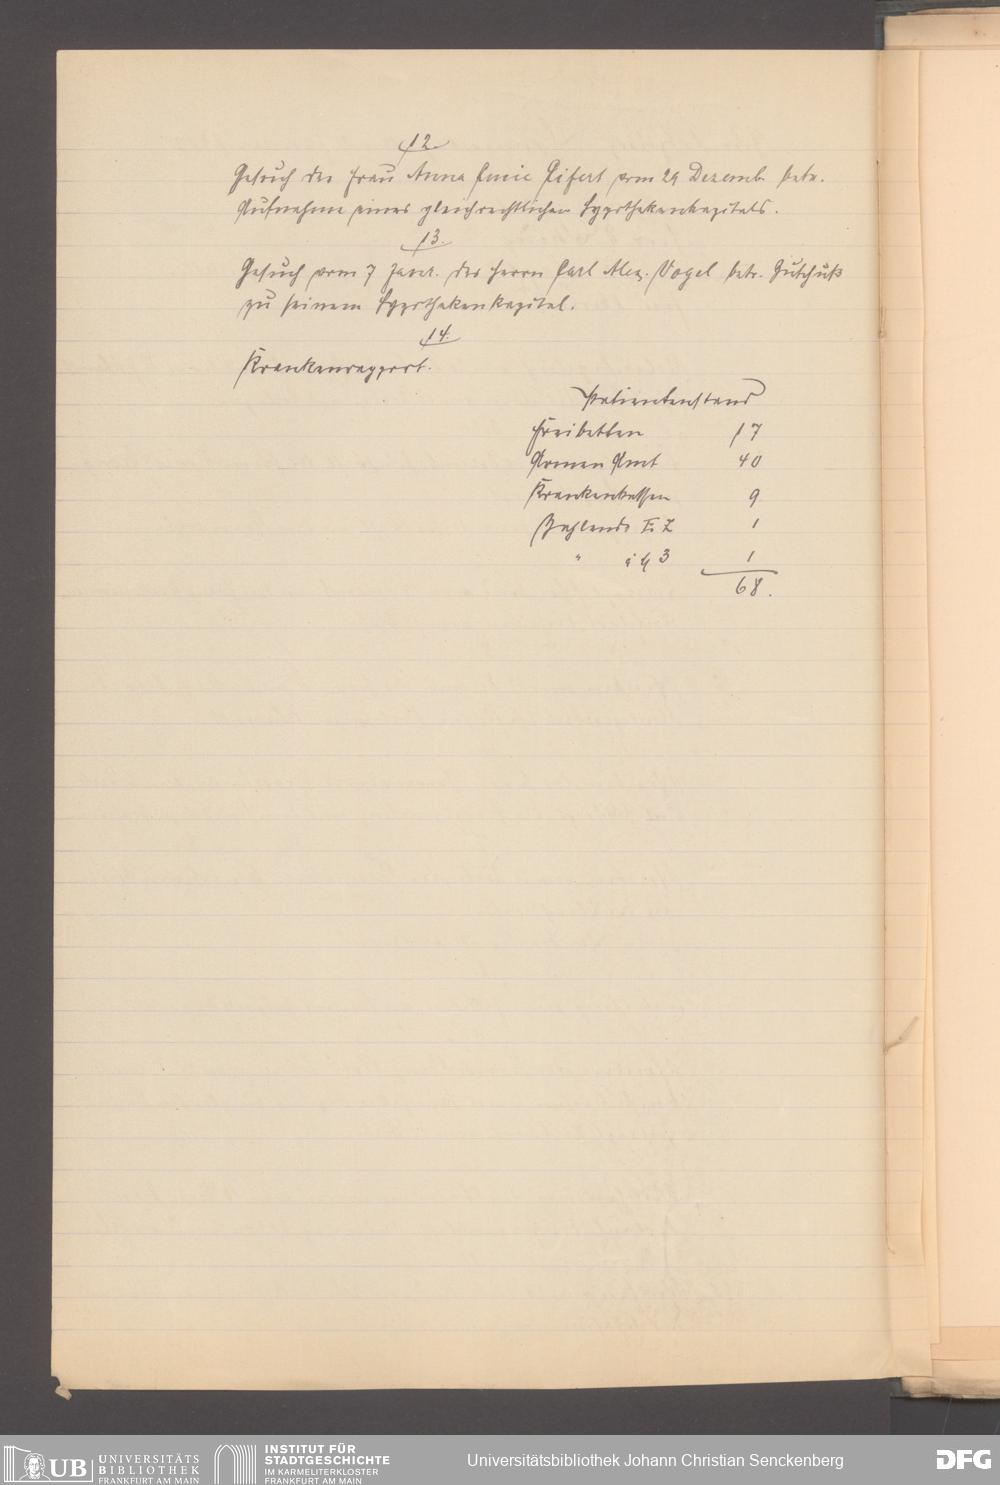 12
Gesuch der Frau Anna Eifert vom 29 Dezemb. betr.
Aufnahme eines gleichrechtlichen Hypothekenkapitals.
13.
Gesuch vom 7 Janr. des Herrn Carl Alex. Vogel betr. Zuschuß
zu seinem Hypothekenkapital.
14.
Krankenrapport.
Patientenstand
Freibetten 17
Armen Amt 40
Krankenkassen 9
Zahlende 1
" à M 3 1
68.
UB UNIVERSITÄTS
BIBLIOTHEK
FRANKFURT AM MAIN
INSTITUT FÜR
STADTGESCHICHTE
IM KARMELITERKLOSTER
FRANKFURT AM MAIN
Universitätsbibliothek Johann Christian Senckenberg
DFG